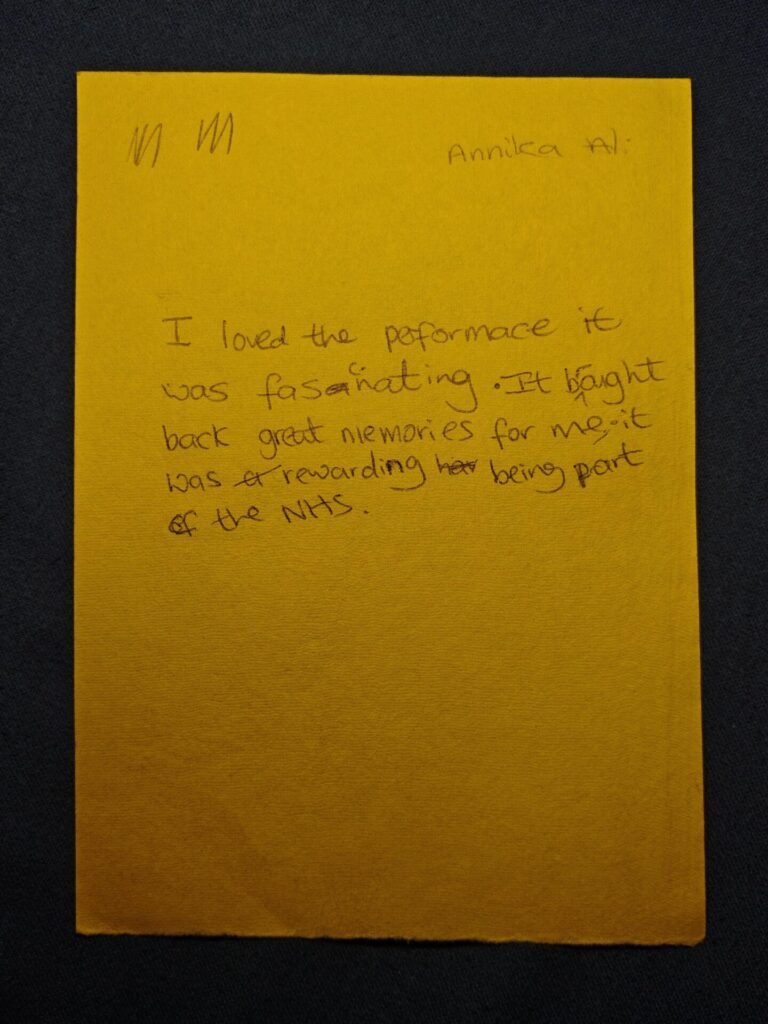 Annika Ali
I loved the peformace it
was fascinating. It bought
back great memories for me it
was rewarding being part
of the NHS.